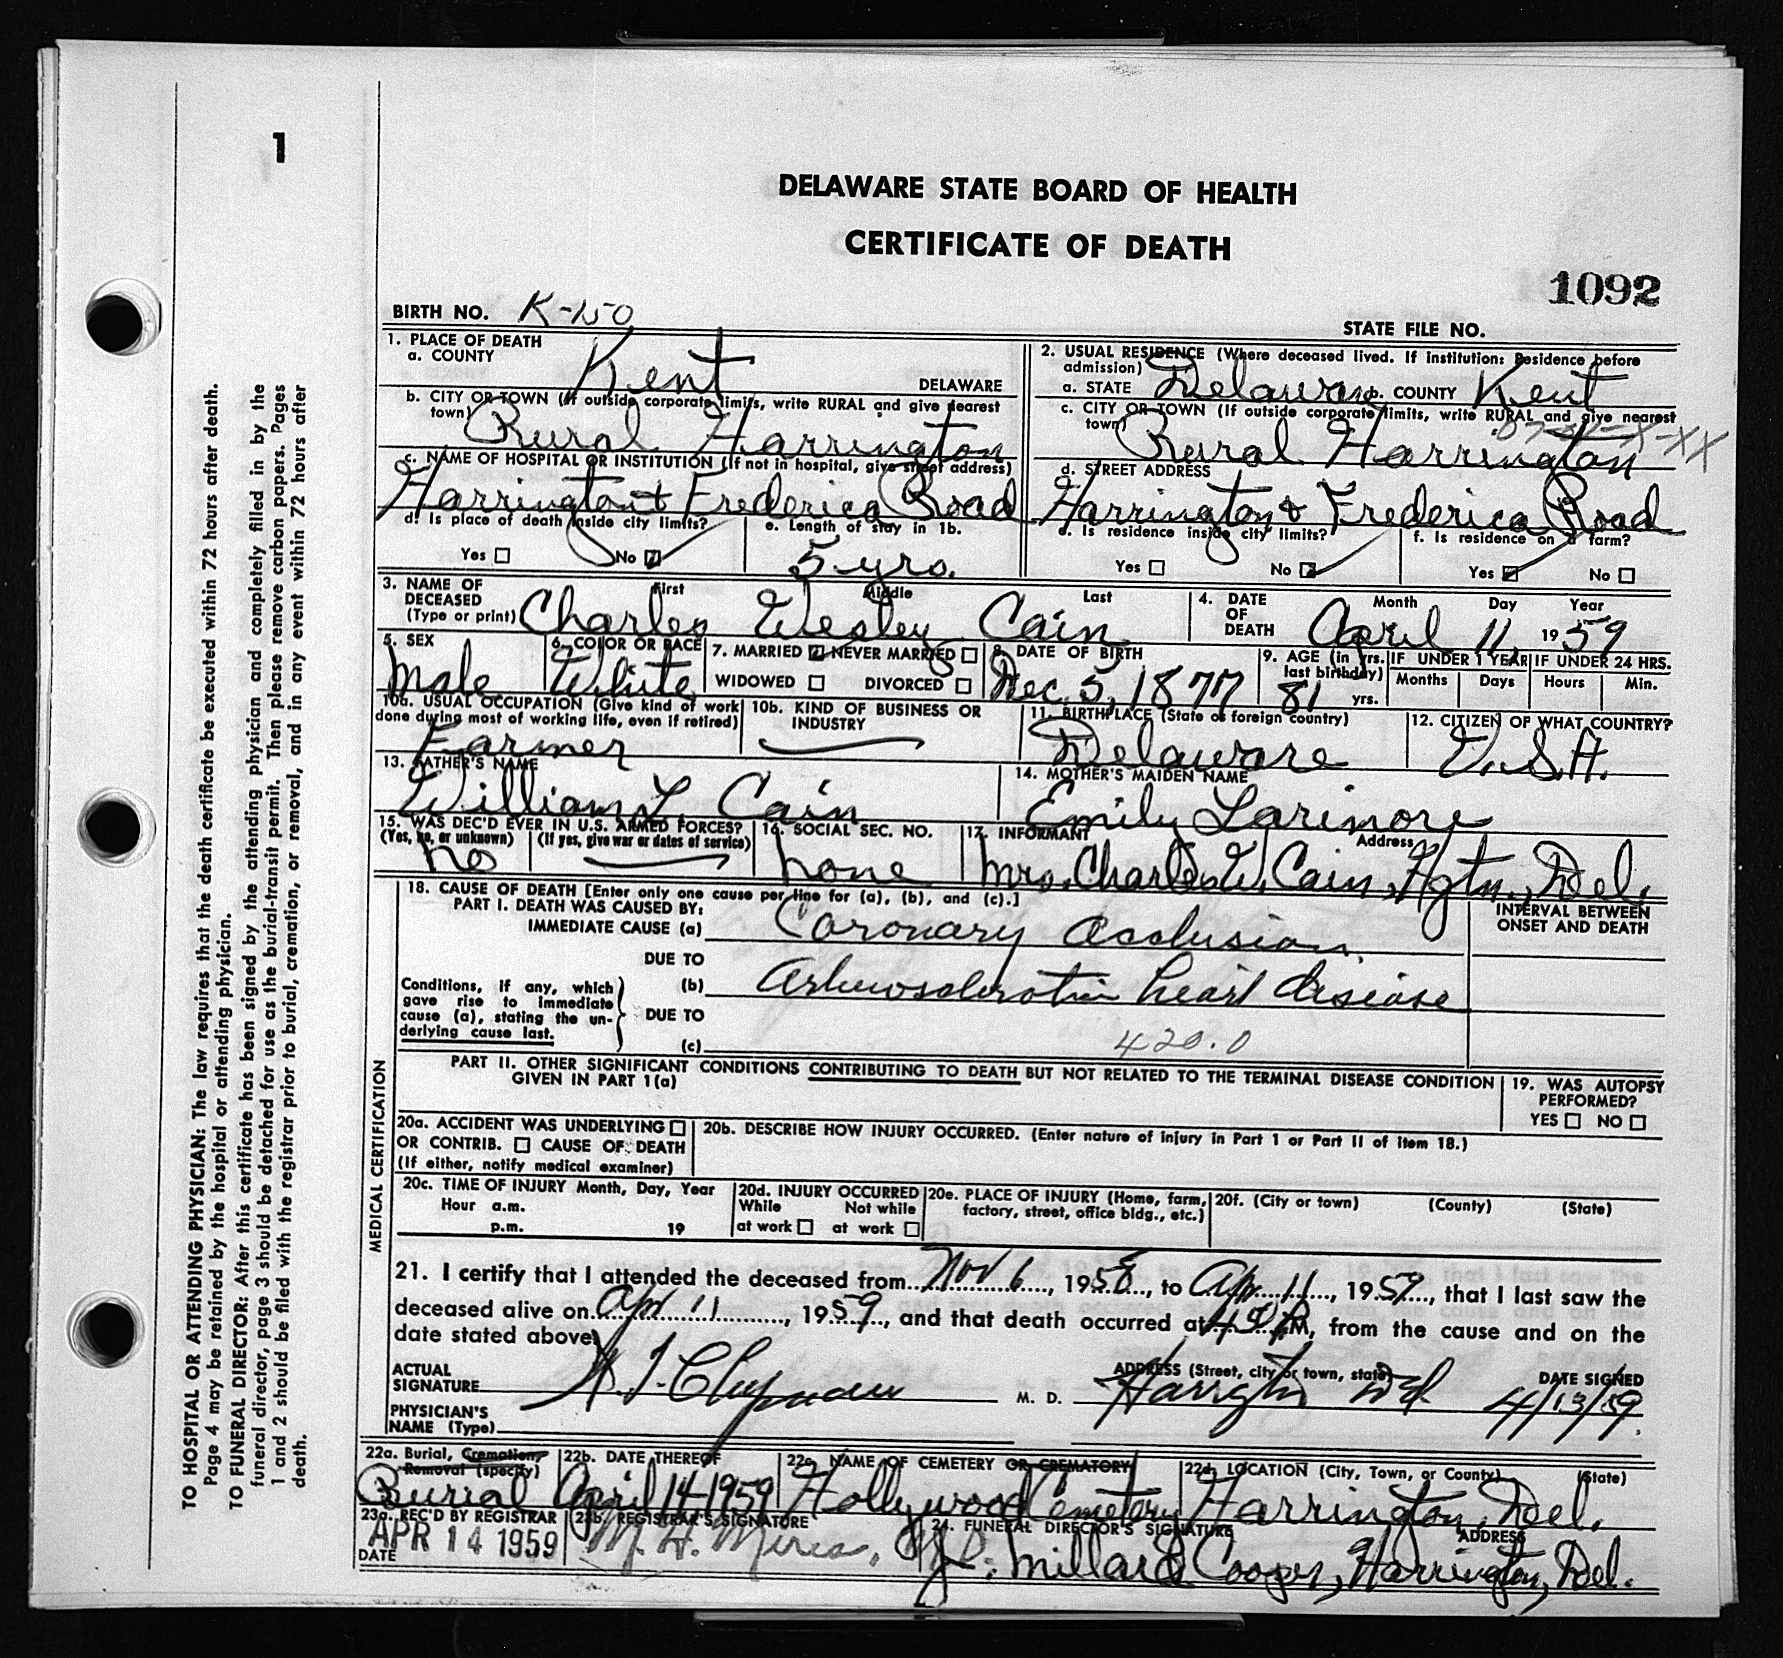 1
DELAWARE STATE BOARD OF HEALTH
CERTIFICATE OF DEATH
1092
BIRTH NO. K-150
STATE FILE NO.
1. PLACE OF DEATH
a. COUNTY Kent DELAWARE
b. CITY OR TOWN (If outside corporate limits, write RURAL and give nearest town)
Rural Harrington
c. NAME OF HOSPITAL OR INSTITUTION (If not in hospital, give street address)
Harrington & Frederica Road
d. Is place of death inside city limits? Yes ☐ No ☑
e. Length of stay in 1b. 5 yrs.
2. USUAL RESIDENCE (Where deceased lived. If institution: Residence before admission)
a. STATE Delaware b. COUNTY Kent
c. CITY OR TOWN (If outside corporate limits, write RURAL and give nearest town)
Rural Harrington
d. STREET ADDRESS
Harrington & Frederica Road
e. Is residence inside city limits? Yes ☐ No ☑
f. Is residence on a farm? Yes ☑ No ☐
3. NAME OF DECEASED (Type or print) First Middle Last
Charles Wesley Cain
4. DATE OF DEATH Month Day Year
April 11, 1959
5. SEX male
6. COLOR OR RACE White
7. MARRIED ☑ NEVER MARRIED ☐ WIDOWED ☐ DIVORCED ☐
8. DATE OF BIRTH Dec. 5, 1877
9. AGE (in yrs. last birthday) 81 yrs.
IF UNDER 1 YEAR Months Days
IF UNDER 24 HRS. Hours Min.
10a. USUAL OCCUPATION (Give kind of work done during most of working life, even if retired)
Farmer
10b. KIND OF BUSINESS OR INDUSTRY
11. BIRTHPLACE (State or foreign country) Delaware
12. CITIZEN OF WHAT COUNTRY? U.S.A.
13. FATHER'S NAME William L Cain
14. MOTHER'S MAIDEN NAME Emily Larimore
15. WAS DEC'D EVER IN U.S. ARMED FORCES? (Yes, no, or unknown) (If yes, give war or dates of service)
no
16. SOCIAL SEC. NO. none
17. INFORMANT Address
Mrs. Charles W. Cain, Hgtn., Del.
18. CAUSE OF DEATH [Enter only one cause per line for (a), (b), and (c).]
PART I. DEATH WAS CAUSED BY:
IMMEDIATE CAUSE (a) Coronary Occlusion
INTERVAL BETWEEN ONSET AND DEATH
DUE TO
(b) Arteriosclerotic heart disease
Conditions, if any, which gave rise to immediate cause (a), stating the underlying cause last.
DUE TO
(c) 420.0
PART II. OTHER SIGNIFICANT CONDITIONS CONTRIBUTING TO DEATH BUT NOT RELATED TO THE TERMINAL DISEASE CONDITION GIVEN IN PART 1(a)
19. WAS AUTOPSY PERFORMED? YES ☐ NO ☐
20a. ACCIDENT WAS UNDERLYING ☐ OR CONTRIB. ☐ CAUSE OF DEATH (If either, notify medical examiner)
20b. DESCRIBE HOW INJURY OCCURRED. (Enter nature of injury in Part 1 or Part II of item 18.)
20c. TIME OF INJURY Month, Day, Year
Hour a.m. p.m. 19
20d. INJURY OCCURRED While at work ☐ Not while at work ☐
20e. PLACE OF INJURY (Home, farm, factory, street, office bldg., etc.)
20f. (City or town) (County) (State)
MEDICAL CERTIFICATION
21. I certify that I attended the deceased from Nov 6, 1958, to Apr 11, 1959, that I last saw the
deceased alive on Apr 11, 1959, and that death occurred at M, from the cause and on the
date stated above.
ACTUAL SIGNATURE M. D.
ADDRESS (Street, city or town, state)
DATE SIGNED 4/13/59
PHYSICIAN'S NAME (Type)
22a. Burial, Cremation, Removal (specify) Burial
22b. DATE THEREOF April 14-1959
22c. NAME OF CEMETERY OR CREMATORY Hollywood Cemetery
22d. LOCATION (City, Town, or County) (State) Harrington, Del.
23a. REC'D BY REGISTRAR DATE APR 14 1959
23b. REGISTRAR'S SIGNATURE
24. FUNERAL DIRECTOR'S SIGNATURE ADDRESS
J. Millard Cooper, Harrington, Del.
TO HOSPITAL OR ATTENDING PHYSICIAN: The law requires that the death certificate be executed within 72 hours after death.
Page 4 may be retained by the hospital or attending physician.
TO FUNERAL DIRECTOR: After this certificate has been signed by the attending physician and completely filled in by the
funeral director, page 3 should be detached for use as the burial-transit permit. Then please remove carbon papers. Pages
1 and 2 should be filed with the registrar prior to burial, cremation, or removal, and in any event within 72 hours after
death.